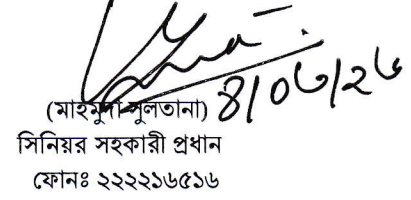 (মাহমুদা সুলতানা)
সিনিয়র সহকারী প্রধান
ফোনঃ ২২২২১৬৫১৬